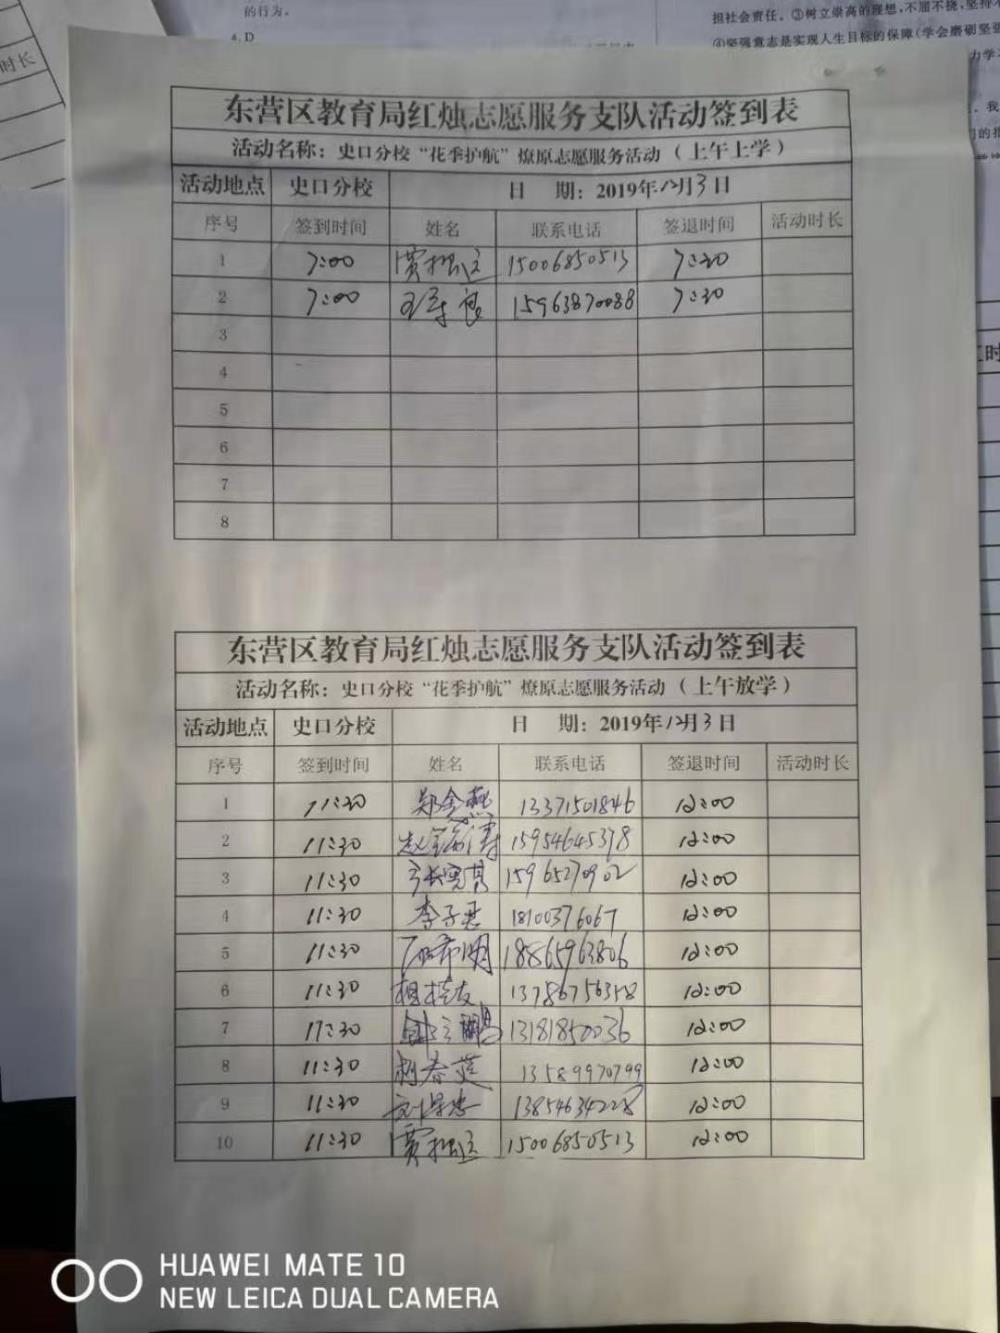 的行为。
4. D
担社会责任。③树立崇高的理想,不屈不挠,坚持不
④坚强意志是实现人生目标的保障(学会磨砺坚
时长
东营区教育局红烛志愿服务支队活动签到表
活动名称：史口分校“花季护航”燎原志愿服务活动（上午上学）
活动地点 史口分校 日 期：2019年12月3日
序号 签到时间 姓名 联系电话 签退时间 活动时长
1 7:00 15006850513 7:30
2 7:00 15963870088 7:30
3
4
5
6
7
8
东营区教育局红烛志愿服务支队活动签到表
活动名称：史口分校“花季护航”燎原志愿服务活动（上午放学）
活动地点 史口分校 日 期：2019年12月3日
序号 签到时间 姓名 联系电话 签退时间 活动时长
1 11:30 郑金燕 13371501846 12:00
2 11:30 15954645378 12:00
3 11:30 15965270902 12:00
4 11:30 李子君 18100376067 12:00
5 11:30 石希明 18865963806 12:00
6 11:30 13786756358 12:00
7 11:30 13181850036 12:00
8 11:30 13589970799 12:00
9 11:30 13854634228 12:00
10 11:30 15006850513 12:00
HUAWEI MATE 10
NEW LEICA DUAL CAMERA